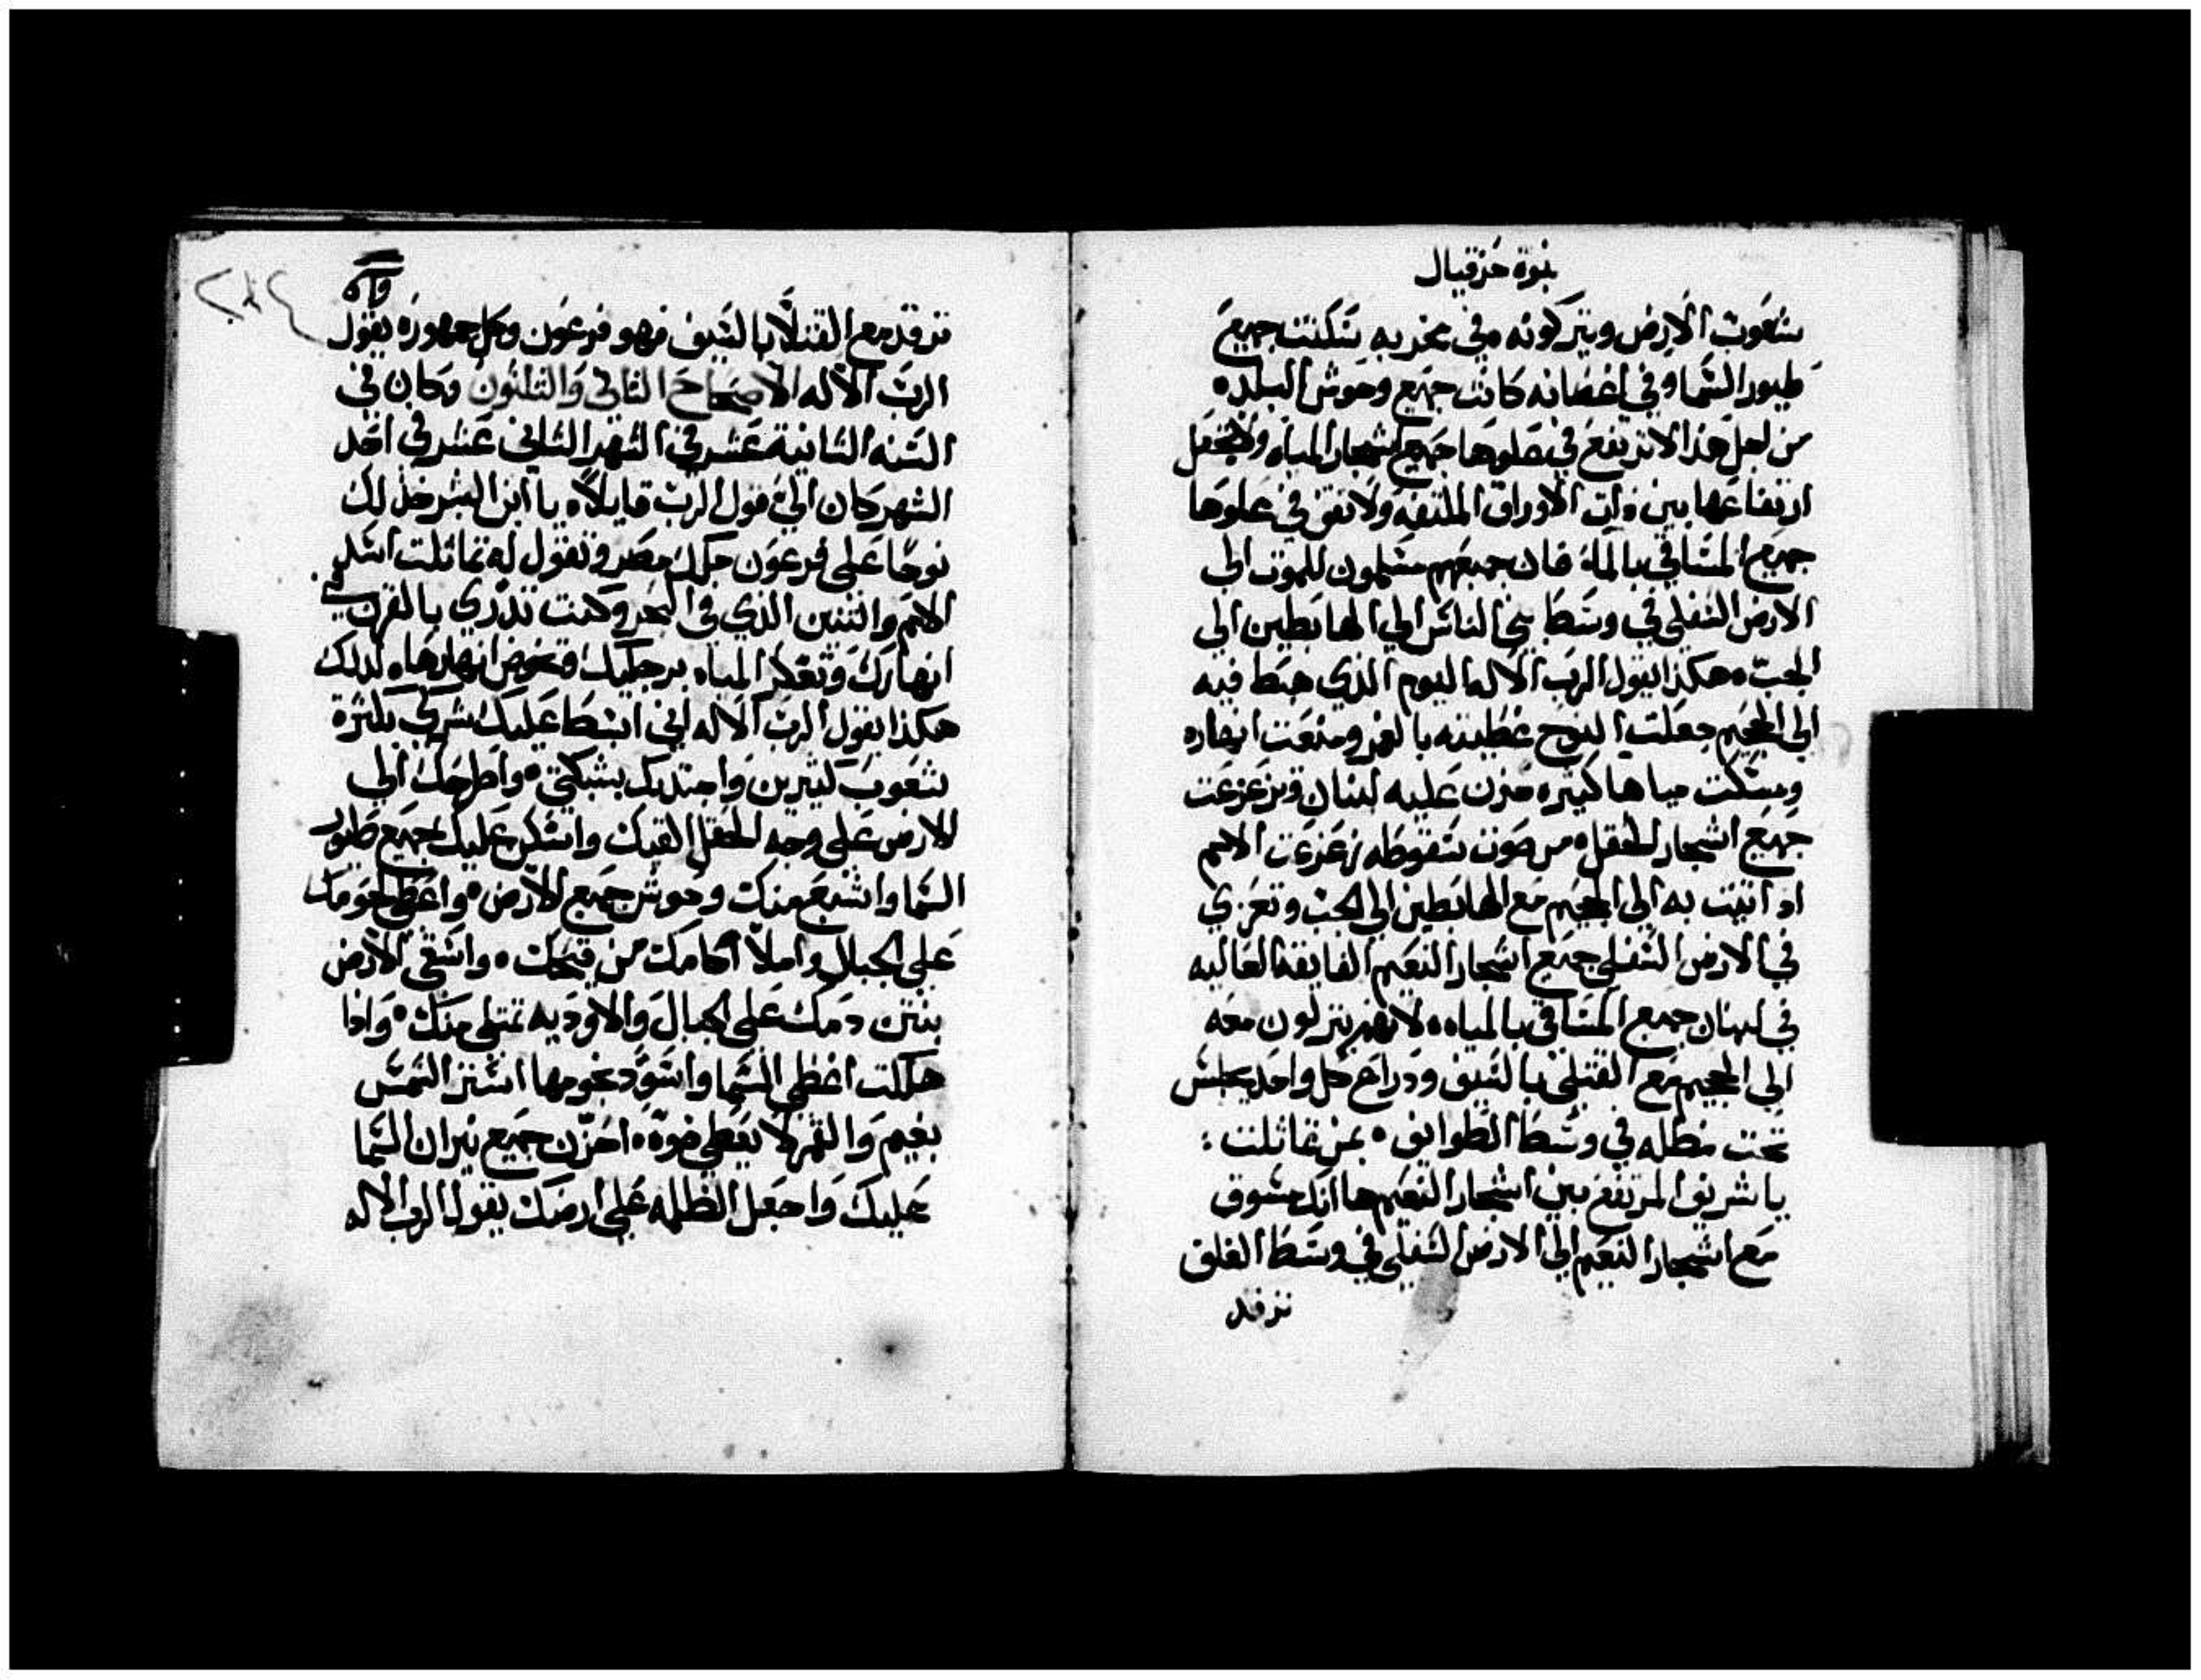 نبوة حزقيال
شعوب الارض ويتركونه وفي مخربه سكنت جميع
طيور السما وفي اغصانه كانت جميع وحوش البلده
من اجل هذا لا ترتفع في علوها جميع اشجار المياه ولا تجعل
ارتفاعها بين ذات الاوراق الملتفه ولا تقف في علوها
جميع المساقي بالماء فان جميعهم مسلمون للموت الي
الارض السفلي في وسط بني الناس الي الهابطين الي
الجب ه هكذا يقول الرب الاله اليوم الذي هبط فيه
الي الجحيم جعلت النوح غطيته بالغمر ومنعت انهاره
ومسكت مياها كثيره حزن عليه لبنان وتزعزعت
جميع اشجار الحقل ه من صوت سقوطه زعزعت الامم
اذ انيت به الي الجحيم مع الهابطين الي الجب وتعزي
في الارض السفلي جميع اشجار النعيم الفايقه العاليه
في لبنان جميع المساقي بالمياه ه لانهم ينزلون معه
الي الجحيم مع القتلي بالسيف ودراع كل واحد يجلس
تحت مظله في وسط الطوايف ه بمن تماثلت :
يا شريف المرتفع بين اشجار النعيم ها انك مسوق
مع اشجار النعيم الي الارض السفلي في وسط الغلف
ترقد
ترقد مع القتلا بالسيف فهو فرعون وكل جمهوره يقول
الرب الاله الاصحاح الثاني والثلثون وكان في
السنه الثانية عشر في الشهر الثاني عشر في احد
الشهر كان الي قول الرب قايلاً ه يا ابن البشر خذ لك
نوحا علي فرعون ملك مصر وتقول له تماثلت اسد
الامم والتنين الذي في البحر وكنت تدري بالقرن في
انهارك وتعكر المياه برجليك وتخوض انهارها ه لذلك
هكذا يقول الرب الاله اني ابسط عليك شركي بكثرة
شعوب كثيرين واجتدبك بشبكتي ه واطرحك الي
الارض علي وجه الحقل القيك واسكن عليك جميع طيور
السما واشبع منك وحوش جميع الارض ه واعطي لحومك
علي الجبال واملا اكامك من قيحك ه واسقي الارض
بنتن دمك علي الجبال والاوديه تمتلي منك ه واذا
هلكت اغطي السما واسود نجومها استر الشمس
بغيم والقمر لا يعطي ضوة ه احزن جميع نيران السما
عليك واجعل الظلمه علي ارضك يقول الرب الاله